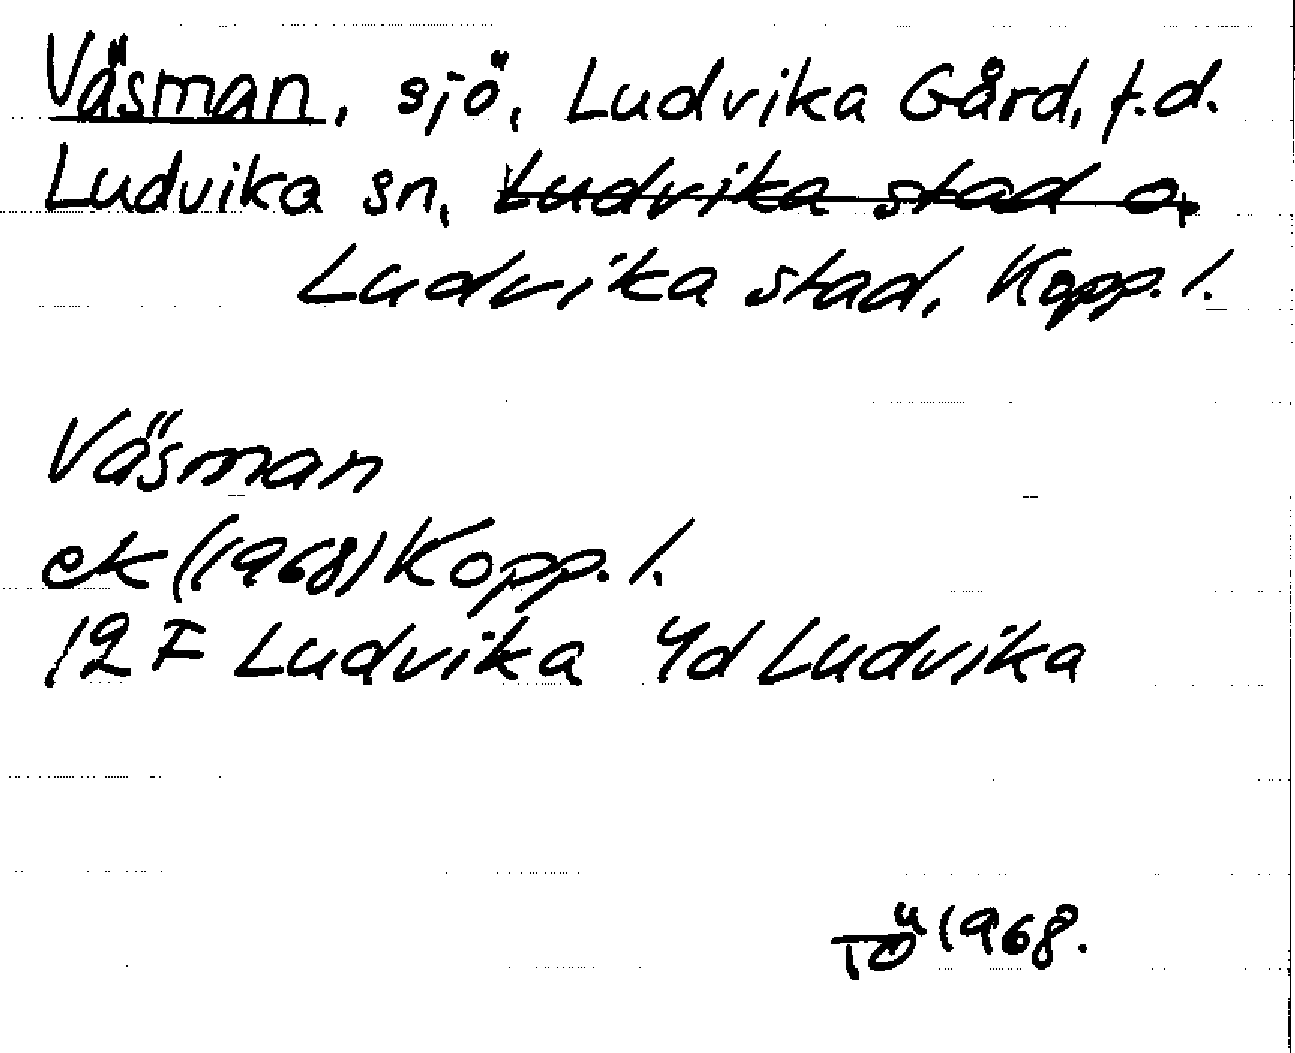 Väsman, sjö, Ludvika Gård, f.d.
Ludvika sn, Ludvika stad o,
Ludvika stad, Kopp. l.
Väsman
ek (1968) Kopp. l.
12 F Ludvika 4d Ludvika
TÖ 1968.